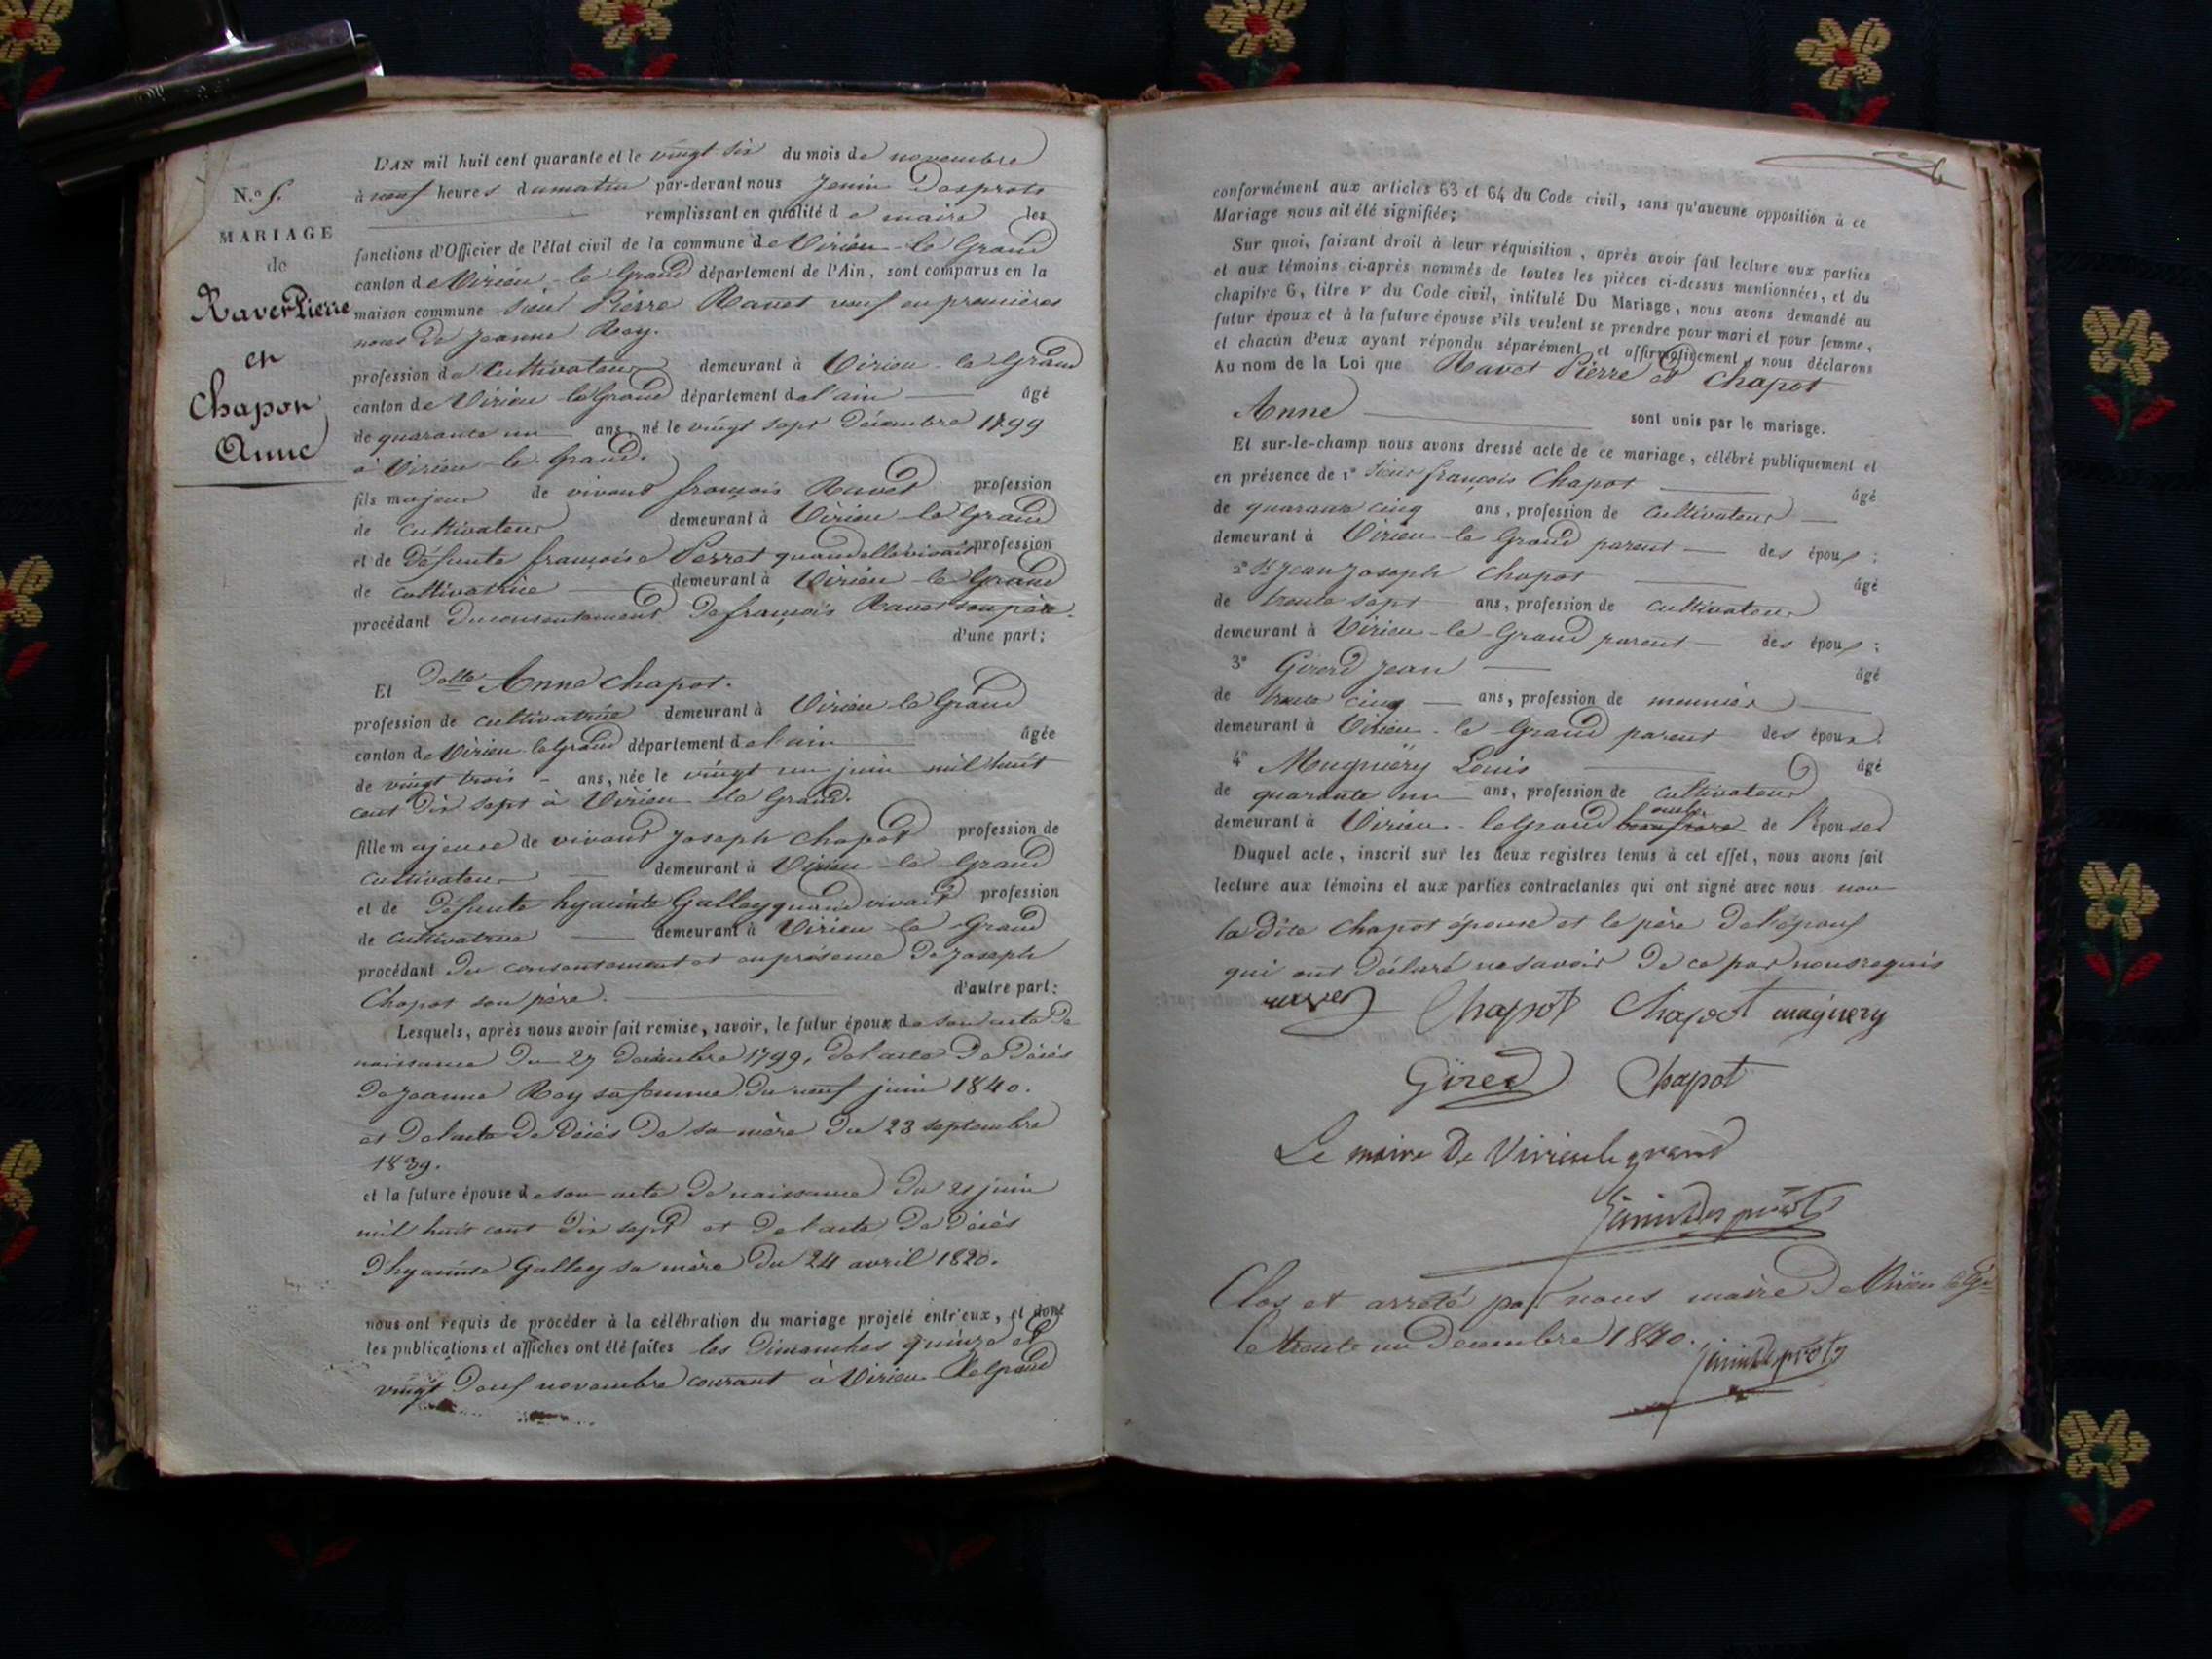 N.o 5.
MARIAGE
de
Ravet Pierre
en
Chapot
Anne
L'AN mil huit cent quarante et le vingt six du mois de novembre
à neuf heures du matin par-devant nous Jenin Desprots
remplissant en qualité de maire les
fonctions d'Officier de l'état civil de la commune de Virieu-le Grand
canton de Virieu-le Grand département de l'Ain, sont comparus en la
maison commune Sieur Pierre Ravet veuf en premières
noces de Jeanne Roy.
profession de Cultivateur demeurant à Virieu-le Grand
canton de Virieu le Grand département de l'ain âgé
de quarante un ans, né le vingt sept Décembre 1799
à Virieu-le-Grand.
fils majeur de vivant françois Ravet profession
de Cultivateur demeurant à Virieu-le Grand
et de Défunte françoise Perret quand elle vivait profession
de cultivatrice demeurant à Virieu-le Grand
procédant Du consentement De françois Ravet son père.
d'une part;
Et Dolle Anne Chapot.
profession de cultivatrice demeurant à Virieu-le Grand
canton de Virieu-le Grand département de l'ain âgée
de vingt trois - ans, née le vingt un juin mil huit
cent Dix sept à Virieu-le Grand.
fille majeure de vivant Joseph Chapot profession de
cultivateur demeurant à Virieu-le Grand
et de Défunte hyacinte Galley quand vivait profession
de Cultivatrice demeurant à Virieu-le Grand
procédant Du consentement et en présence De Joseph
Chapot son père. d'autre part:
Lesquels, après nous avoir fait remise, savoir, le futur époux de son acte De
naissance Du 27 Décembre 1799, De l'acte De Décès
De Jeanne Roy sa femme Du neuf juin 1840.
et De l'acte De Décès De sa mère Du 23 septembre
1839.
et la future épouse de son acte De naissance Du 21 juin
mil huit cent Dix sept et De l'acte De Décès
D'hyacinte Galley sa mère Du 24 avril 1820.
nous ont requis de procéder à la célébration du mariage projeté entr'eux, et dont
les publications et affiches ont été faites les Dimanches quinze et
vingt Deux novembre courant à Virieu-le Grand
6
conformément aux articles 63 et 64 du Code civil, sans qu'aucune opposition à ce
Mariage nous ait été signifiée;
Sur quoi, faisant droit à leur réquisition, après avoir fait lecture aux parties
et aux témoins ci-après nommés de toutes les pièces ci-dessus mentionnées, et du
chapitre 6, titre v du Code civil, intitulé Du Mariage, nous avons demandé au
futur époux et à la future épouse s'ils veulent se prendre pour mari et pour femme,
et chacun d'eux ayant répondu séparément et affirmativement, nous déclarons
Au nom de la Loi que Ravet Pierre et Chapot
Anne sont unis par le mariage.
Et sur-le-champ nous avons dressé acte de ce mariage, célébré publiquement et
en présence de 1° Sieur françois Chapot âgé
de quarante cinq ans, profession de Cultivateur
demeurant à Virieu-le Grand parent des époux;
2° Sr Jean Joseph Chapot âgé
de trente sept ans, profession de cultivateur
demeurant à Virieu-le-Grand parent des époux;
3° Girerd Jean âgé
de trente cinq ans, profession de meunier
demeurant à Virieu-le Grand parent des époux.
4° Mugniery Louis âgé
de quarante un ans, profession de cultivateur
oncle
demeurant à Virieu-le Grand beaufrère de l'épouse
Duquel acte, inscrit sur les deux registres tenus à cet effet, nous avons fait
lecture aux témoins et aux parties contractantes qui ont signé avec nous non
la Dite Chapot épouse et le père De l'époux
qui ont Déclaré ne savoir De ce par nous requis
ravet Chapot Chapot mugniery
Girerd Chapot
Le maire De Virieu le grand
Jenin Desprots
Clos et arreté par nous maire De Virieu le Gd
le trente un Décembre 1840.
Jenin Desprots